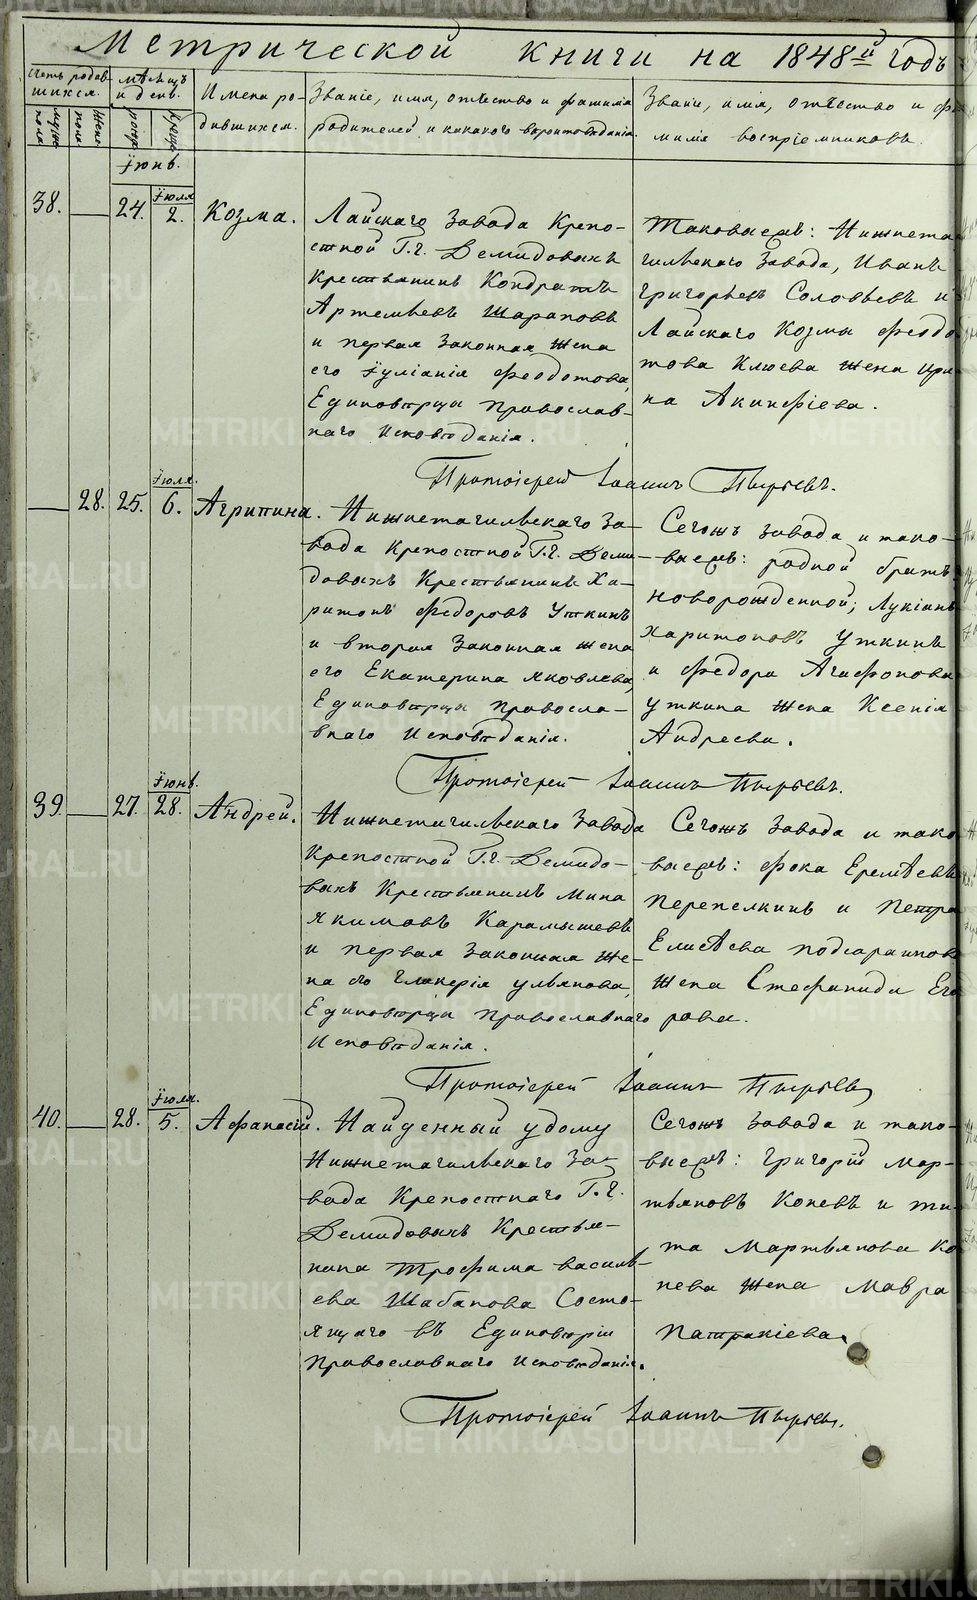 Метрической книги на 1848й годъ
Счетъ родив-
шихся.
Мѣсяцъ
и день.
Имена ро-
дившихся.
Званіе, имя, отчество и фамилія
родителей, и какого вѣроисповѣданія.
Званіе, имя, отчество и фа-
милія воспріемниковъ.
мужеска
пола
женска
пола
рожд.
крещ.
Іюнь.
38.
24.
Іюля
2.
Козма.
Лайскаго завода Крепо-
стной Г.г. Демидовыхъ
крестьянинъ Кондратъ
Артемьевъ Шараповъ
и первая законная жена
его Іуліанія Феодотова,
Единовѣрцы Православ-
наго исповѣданія.
Таковыежъ: Нижнета-
гильскаго завода, Иванъ
Григорьевъ Соловьевъ и
Лайскаго Козмы Феодо-
това Клюева жена Ири-
на Акинфіева.
Протоіерей Іоаннъ Пырьевъ.
28.
25.
Іюля.
6.
Агрипина.
Нижнетагильскаго за-
вода Крепостной Г.г. Деми-
довыхъ Крестьянинъ Ха-
ритонъ Федоровъ Уткинъ
и вторая законная жена
его Екатерина Яковлева,
Единовѣрцы Правосла-
внаго исповѣданія.
Сегожъ завода и тако-
выежъ: родной братъ
новорожденной, Лукіанъ
Харитоновъ Уткинъ
и Федора Агафонова
Уткина жена Ксенія
Андреева.
Протоіерей Іоаннъ Пырьевъ.
39.
27.
Іюнь.
28.
Андрей.
Нижнетагильскаго завода
крепостной Г.г. Демидо-
выхъ Крестьянинъ Мина
Якимовъ Карамышевъ
и первая законная же-
на его Гликерія Ульянова,
Единовѣрцы Православнаго
исповѣданія.
Сегожъ завода и тако-
выежъ: Фока Еремѣевъ
Перепелкинъ и Петра
Елисѣева
жена Стефанида Его-
рова.
Протоіерей Іоаннъ Пырьевъ
40.
28.
Іюля.
5.
Афанасій.
Найденный у дому
Нижнетагильскаго за-
вода Крепостнаго Г.г.
Демидовыхъ Крестья-
нина Трофима Василь-
ева Шабанова Состо-
ящаго въ Единовѣріи
Православнаго исповѣданія.
Сегожъ завода и тако-
выежъ: Григорій Мар-
тьяновъ Коневъ и Ти-
та Мартьянова Ко-
нева жена Мавра
Патракіева.
Протоіерей Іоаннъ Пырьевъ.
METRIKI.GASO-URAL.RU